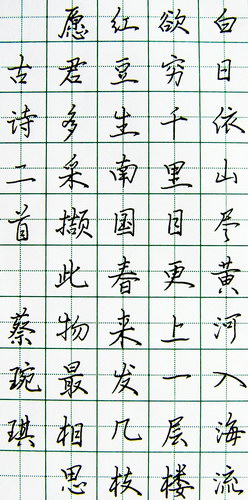 白日依山尽黄河入海流
欲穷千里目更上一层楼
红豆生南国春来发几枝
愿君多采撷此物最相思
古诗二首 蔡琬琪